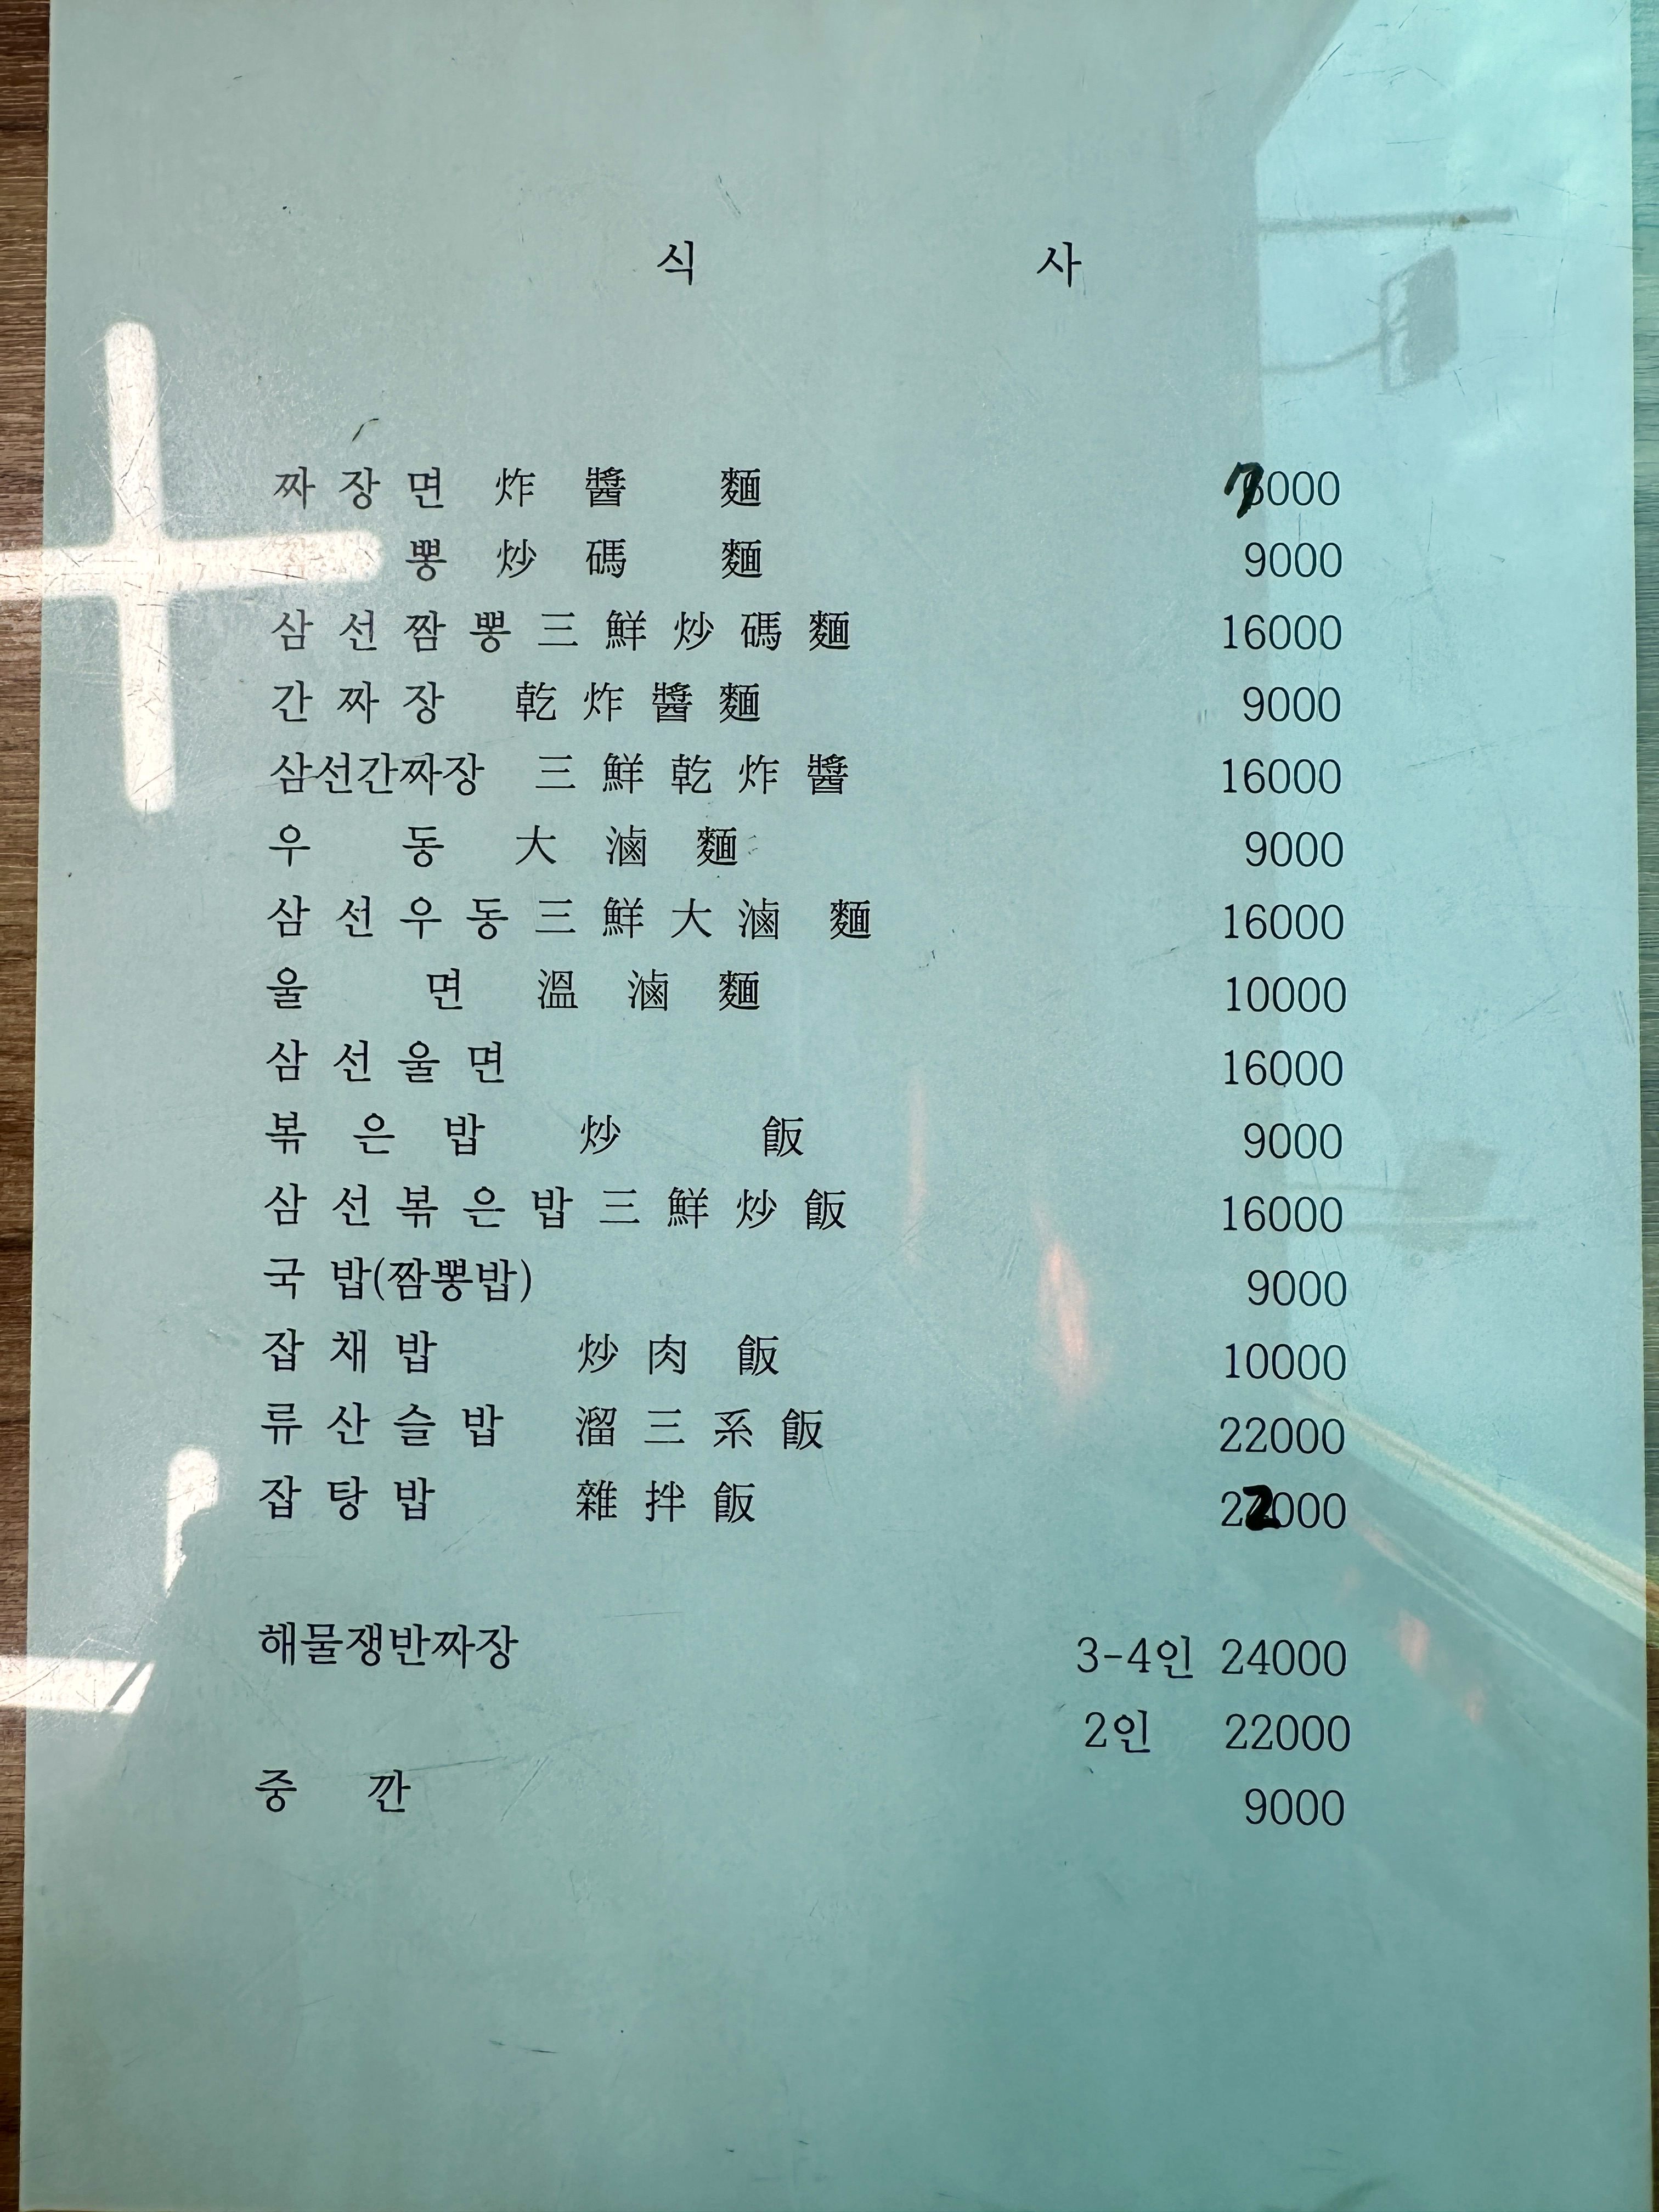 식 사
짜 장 면 炸 醬 麵 7000
뽕 炒 碼 麵 9000
삼 선 짬 뽕 三 鮮 炒 碼 麵 16000
간 짜 장 乾 炸 醬 麵 9000
삼선간짜장 三 鮮 乾 炸 醬 16000
우 동 大 滷 麵 9000
삼 선 우 동 三 鮮 大 滷 麵 16000
울 면 溫 滷 麵 10000
삼 선 울 면 16000
볶 은 밥 炒 飯 9000
삼 선 볶 은 밥 三 鮮 炒 飯 16000
국 밥(짬뽕밥) 9000
잡 채 밥 炒 肉 飯 10000
류 산 슬 밥 溜 三 系 飯 22000
잡 탕 밥 雜 拌 飯 22000
해물쟁반짜장 3-4인 24000
2인 22000
중 깐 9000